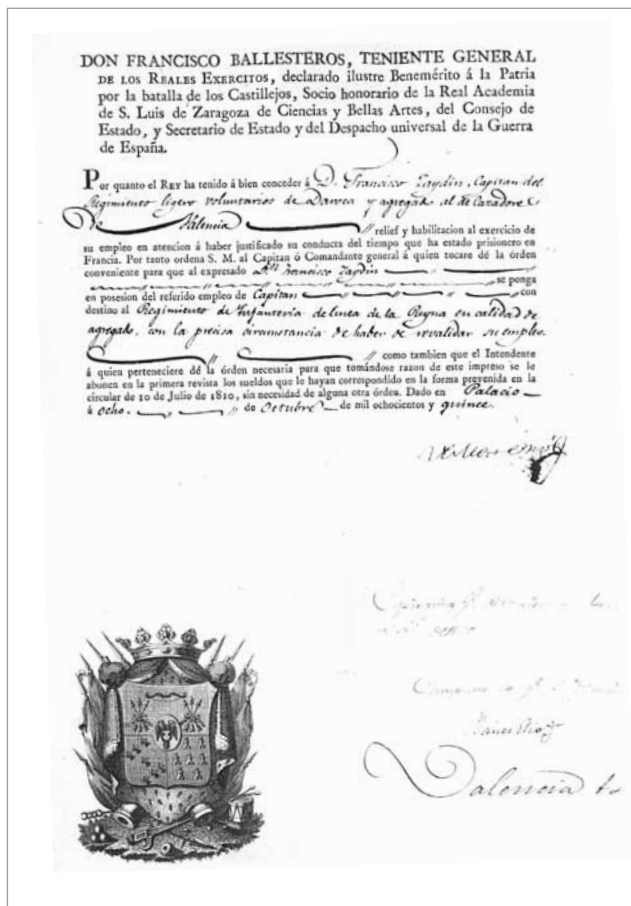 DON FRANCISCO BALLESTEROS, TENIENTE GENERAL
DE LOS REALES EXERCITOS, declarado ilustre Benemérito á la Patria
por la batalla de los Castillejos, Socio honorario de la Real Academia
de S. Luis de Zaragoza de Ciencias y Bellas Artes, del Consejo de
Estado, y Secretario de Estado y del Despacho universal de la Guerra
de España.
Por quanto el REY ha tenido á bien conceder á D. Francisco Zaydin, Capitan del
Regimiento ligero voluntarios de Daroca y agregado al de Cazadores
de Valencia relief y habilitacion al exercicio de
su empleo en atencion á haber justificado su conducta del tiempo que ha estado prisionero en
Francia. Por tanto ordena S. M. al Capitan ó Comandante general á quien tocare dé la órden
conveniente para que al expresado Dn. Francisco Zaydin
se ponga
en posesion del referido empleo de Capitan con
destino al Regimiento de Infanteria de linea de la Reyna en calidad de
agregado, con la precisa circunstancia de haber de revalidar su empleo.
como tambien que el Intendente
á quien perteneciere dé la órden necesaria para que tomándose razon de este impreso se le
abonen en la primera revista los sueldos que le hayan correspondido en la forma prevenida en la
circular de 10 de Julio de 1810, sin necesidad de alguna otra órden. Dado en Palacio
á ocho de Octubre de mil ochocientos y quince.
Valencia